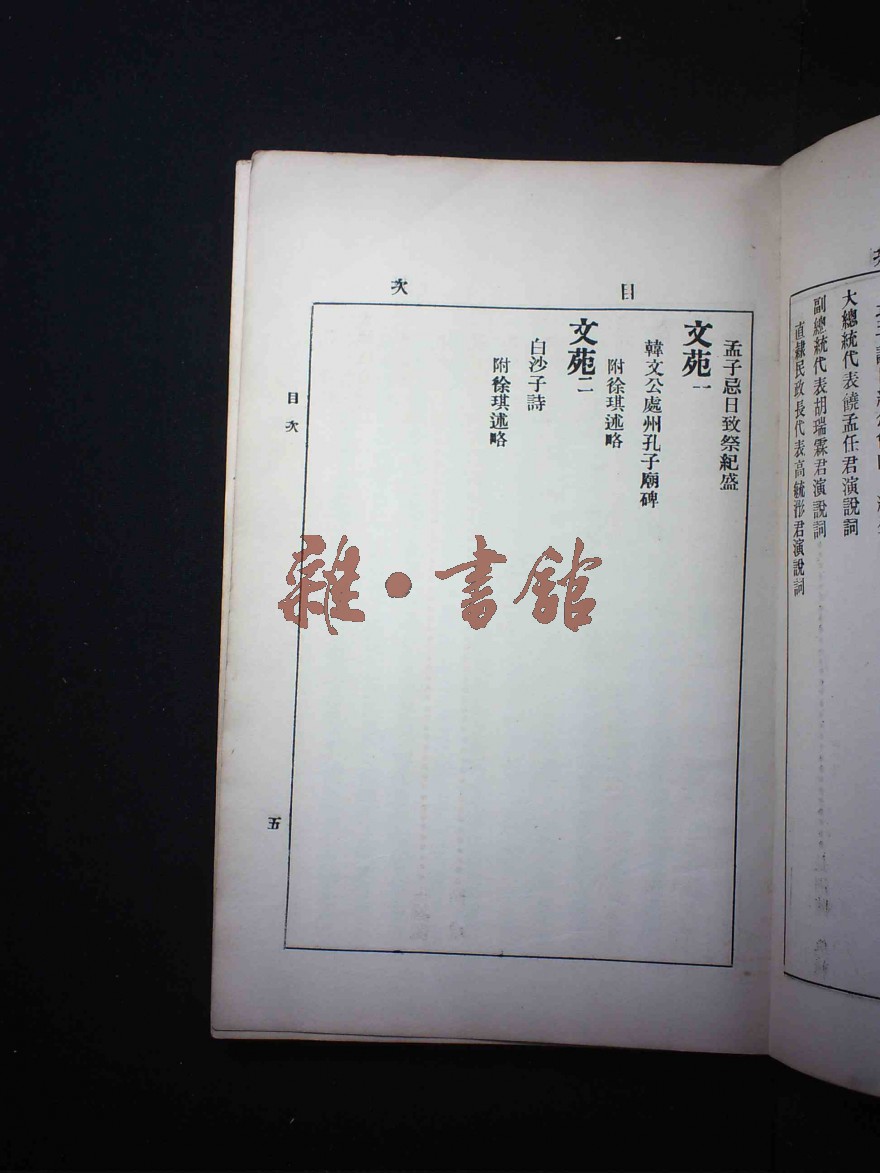 大總統代表饒孟任君演說詞
副總統代表胡瑞霖君演說詞
直隸民政長代表高毓浵君演說詞
目次
孟子忌日致祭紀盛
文苑一
韓文公處州孔子廟碑
附徐琪述略
文苑二
白沙子詩
附徐琪述略
目次
五
雜·書館